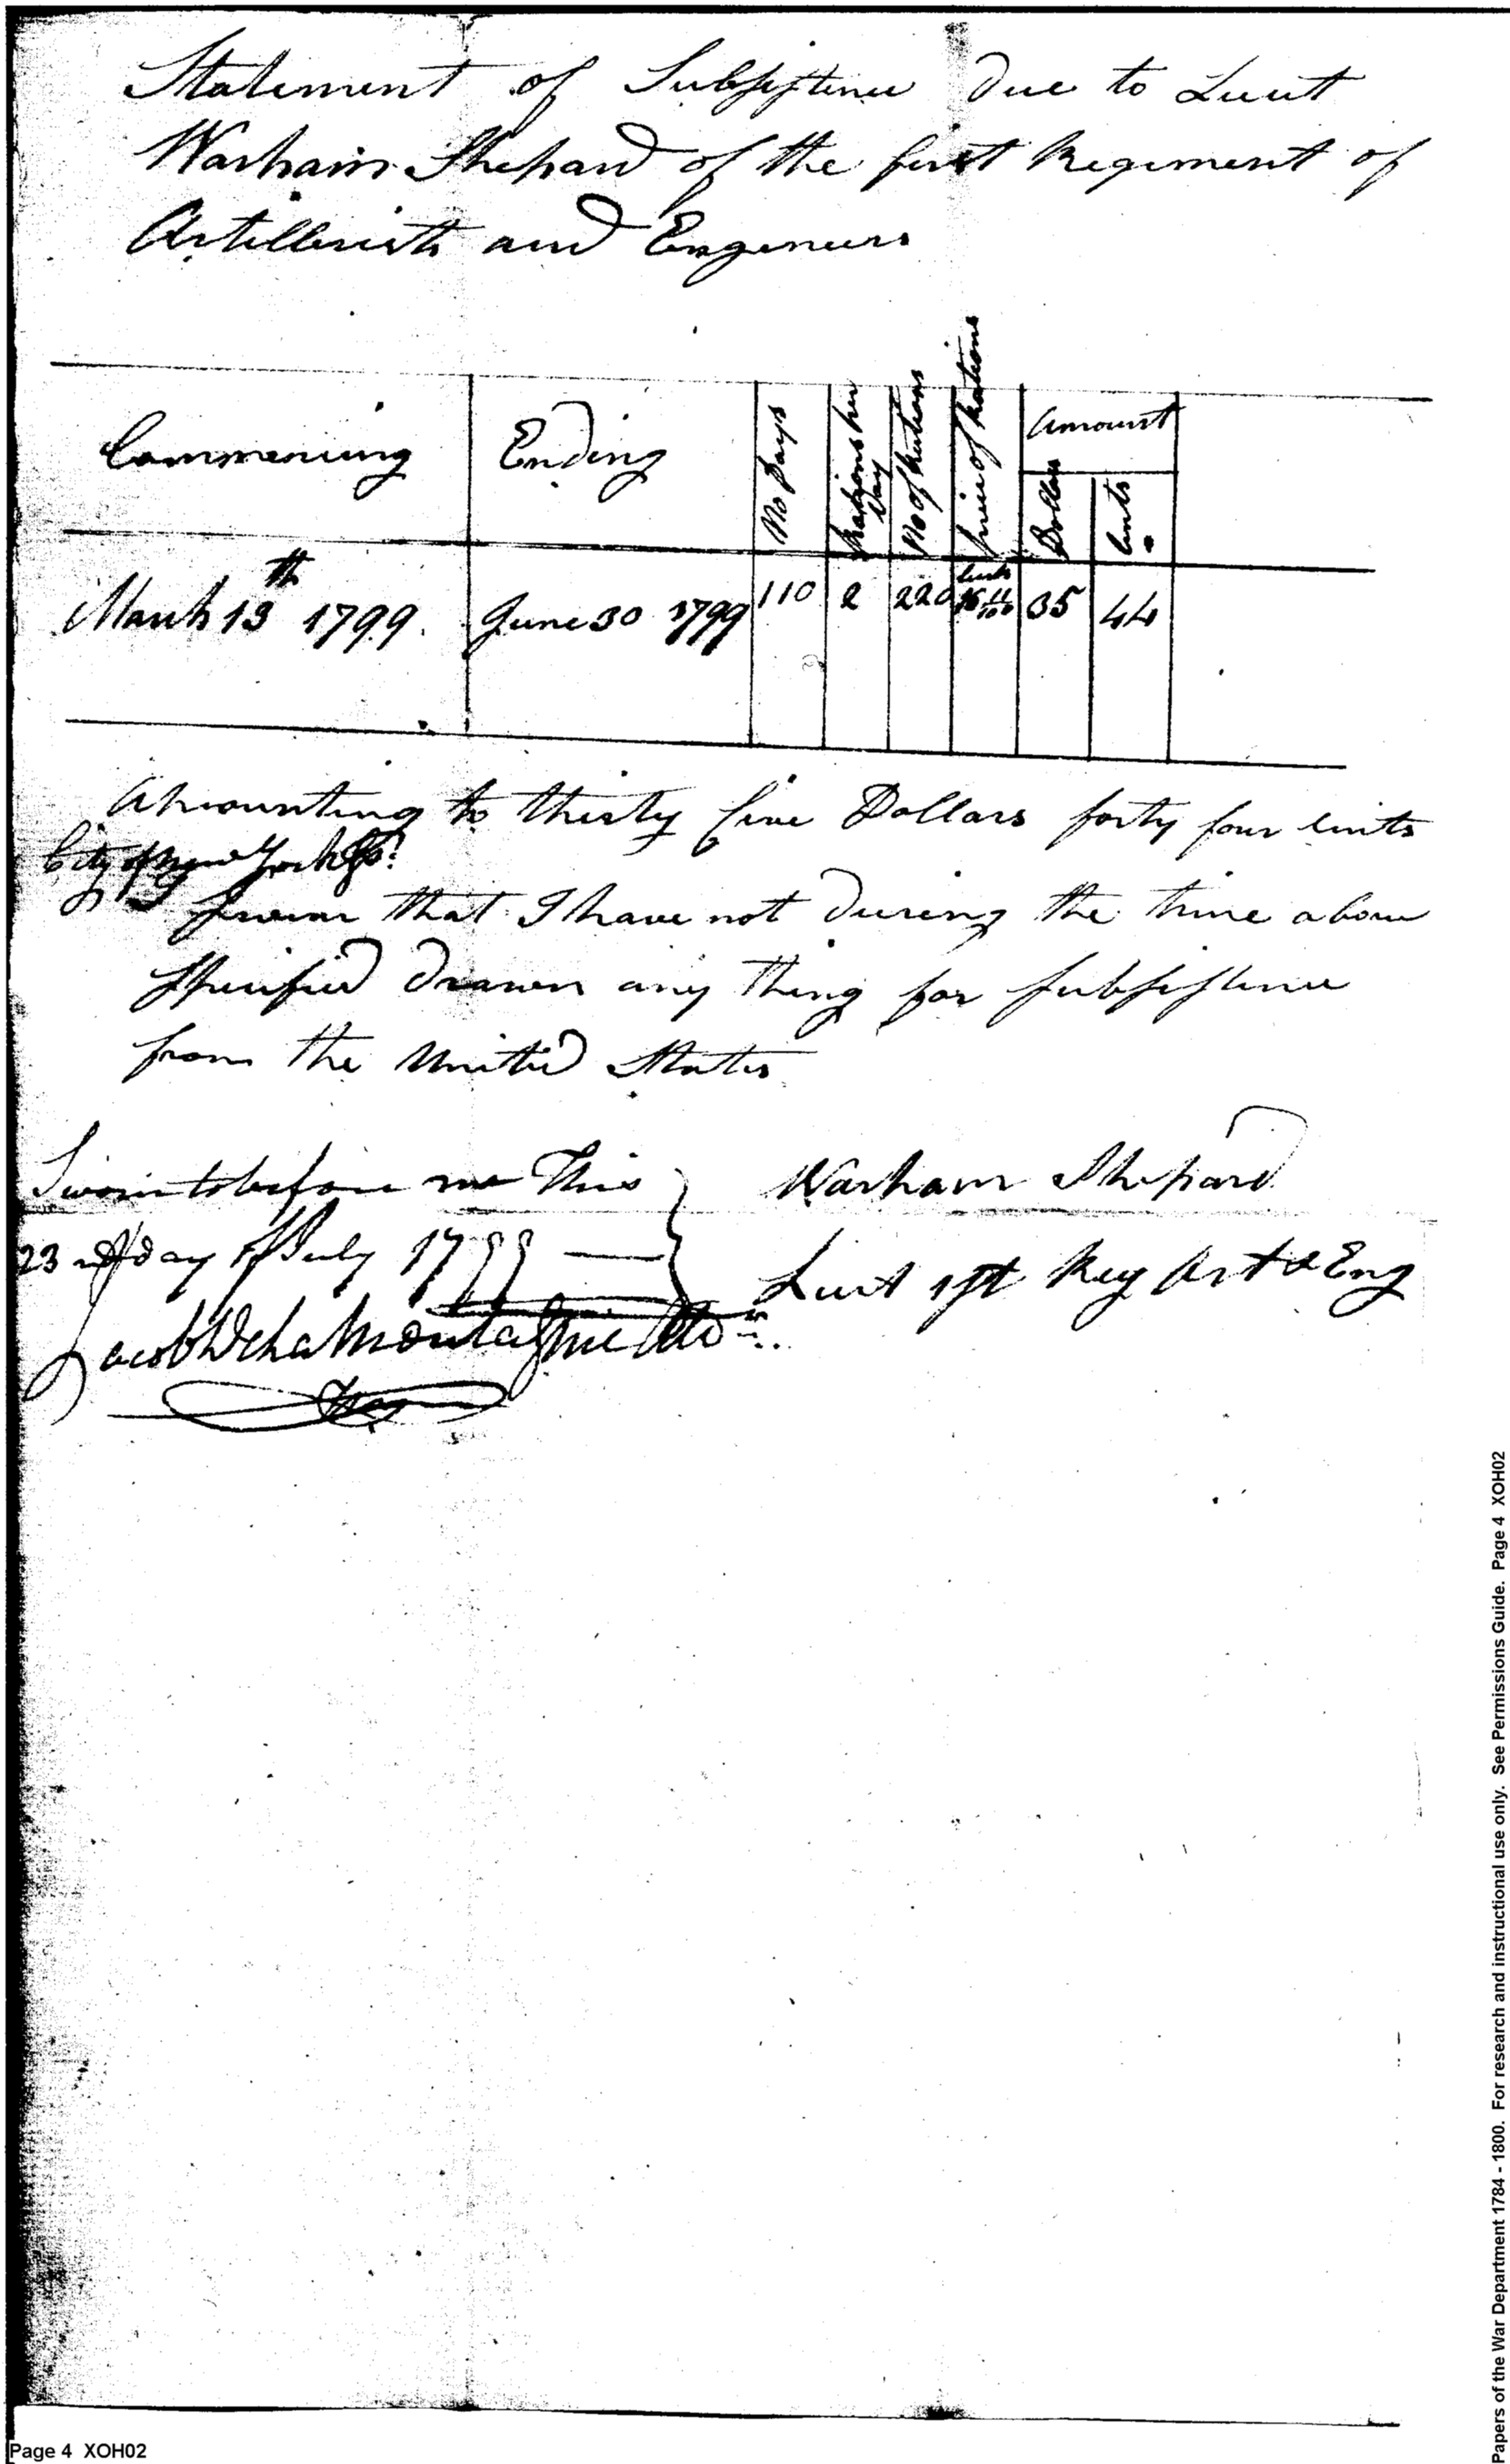 Statement of Subsistence Due to Lieut
Warham Shepard of the first Regiment of
Artillerists and Engeneers
Commencing
Ending
No Days
Rations per Day
No of Rations
price of Rations
Amount
Dollars
Cents
March 13th 1799.
June 30 1799
110
2
220
Cents
16 11/100
35
44
Amounting to thirty five Dollars forty four Cents
City of New York Ss:
I swear that I have not During the time above
specified Drawn any thing for subsistence
from the United States
Sworn to before me This
23rd day of July 1799
Jacob DelaMontagnie
Warham Shepard
Lieut 1st Reg Art & Eng
Page 4 XOH02
Papers of the War Department 1784 - 1800. For research and instructional use only. See Permissions Guide. Page 4 XOH02